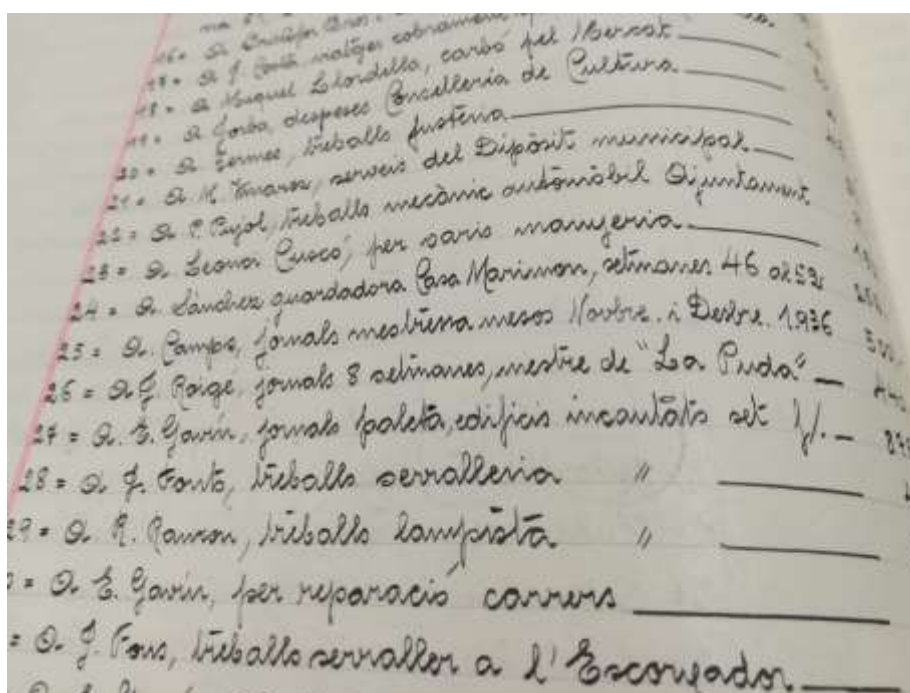 16 = A
17 = A J. Costa viatges cobrament
18 = A Miquel Llordella, carbó pel Mercat
19 = A Jorba, despeses Concelleria de Cultura
20 = A Germes, treballs fusteria
21 = A M. Vinaros, serveis del Dipòsit municipal
22 = A P. Pujol, treballs mecànic automòbil Ajuntament
23 = A Leonor Cuscó, per varis manyeria
24 = A. Sánchez guardadora Casa Marimon, setmanes 46 al 52
25 = A. Camps, jornals mestressa mesos Novbre. i Desbre. 1936
26 = A J. Roigé, jornals 8 setmanes, mestre de "La Puda"
27 = A. E. Gavín, jornals paleta, edificis incautats set
28 = A J. Fonts, treballs serralleria "
29 = A R. Ramon, treballs lampista "
= A E. Gavín, per reparació carrers
= A J. Fons, treballs serraller a l'Escorxador